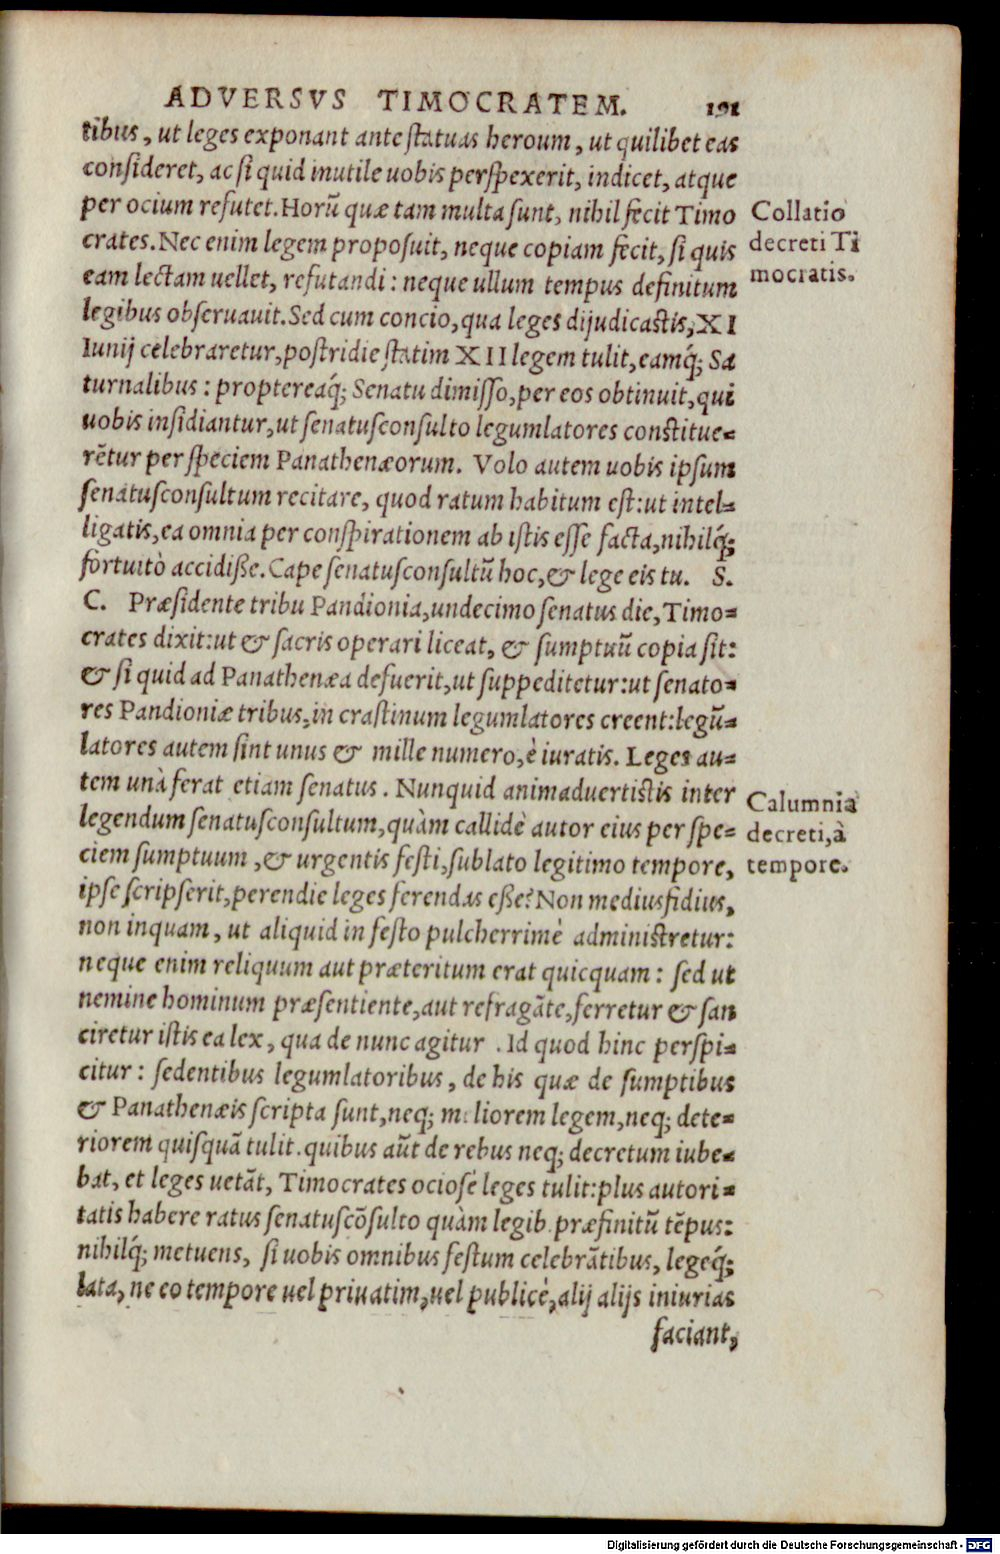 ADVERSVS TIMOCRATEM. 191
tibus, ut leges exponant ante statuas heroum, ut quilibet eas
consideret, ac si quid inutile uobis perspexerit, indicet, atque
per ocium refutet. Horũ quæ tam multa sunt, nihil fecit Timo
crates. Nec enim legem proposuit, neque copiam fecit, si quis
eam lectam uellet, refutandi: neque ullum tempus definitum
legibus obseruauit. Sed cum concio, qua leges dijudicastis, XI
Iunij celebraretur, postridie statim XII legem tulit, eamq́; Sa
turnalibus: proptereaq́; Senatu dimisso, per eos obtinuit, qui
uobis insidiantur, ut senatusconsulto legumlatores constitue-
rẽtur per speciem Panathenæorum. Volo autem uobis ipsum
senatusconsultum recitare, quod ratum habitum est: ut intel-
ligatis, ea omnia per conspirationem ab istis esse facta, nihilq́;
fortuitò accidisse. Cape senatusconsultũ hoc, & lege eis tu. S.
C. Præsidente tribu Pandionia, undecimo senatus die, Timo-
crates dixit: ut & sacris operari liceat, & sumptuũ copia sit:
& si quid ad Panathenæa defuerit, ut suppeditetur: ut senato-
res Pandioniæ tribus, in crastinum legumlatores creent: legũ-
latores autem sint unus & mille numero, è iuratis. Leges au-
tem unà ferat etiam senatus. Nunquid animaduertistis inter
legendum senatusconsultum, quàm callidè autor eius per spe-
ciem sumptuum, & urgentis festi, sublato legitimo tempore,
ipse scripserit, perendie leges ferendas esse? Non mediusfidius,
non inquam, ut aliquid in festo pulcherrimè administretur:
neque enim reliquum aut præteritum erat quicquam: sed ut
nemine hominum præsentiente, aut refragãte, ferretur & san
ciretur istis ea lex, qua de nunc agitur. Id quod hinc perspi-
citur: sedentibus legumlatoribus, de his quæ de sumptibus
& Panathenæis scripta sunt, neq; meliorem legem, neq; dete-
riorem quisquã tulit. quibus aũt de rebus neq; decretum iube-
bat, et leges uetãt, Timocrates ociosè leges tulit: plus autori-
tatis habere ratus senatuscõsulto quàm legib. præfinitũ tẽpus:
nihilq́; metuens, si uobis omnibus festum celebrãtibus, legeq́;
lata, ne eo tempore uel priuatim, uel publicè, alij alijs iniurias
faciant,
Collatio
decreti Ti
mocratis.
Calumnia
decreti, à
tempore.
Digitalisierung gefördert durch die Deutsche Forschungsgemeinschaft - DFG